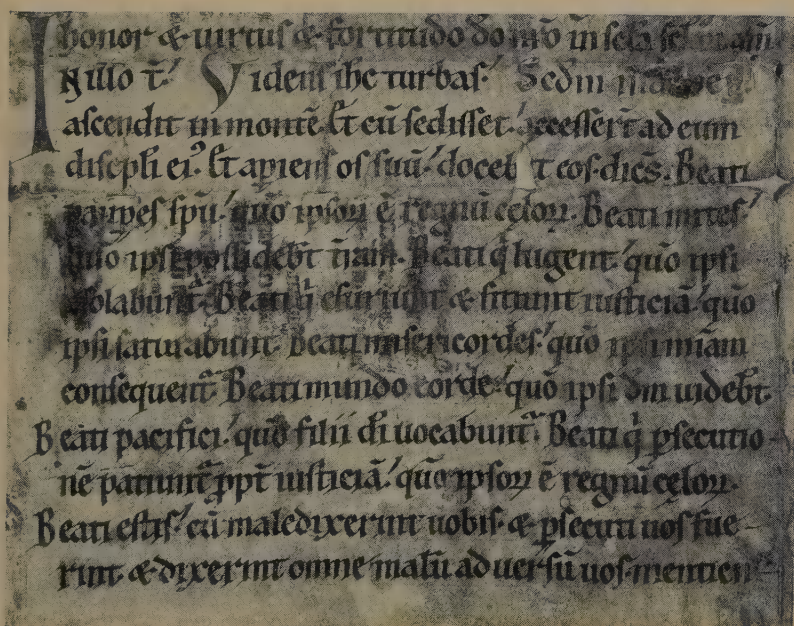 honor & uirtus & fortitudo do nrō in scła scłoꝝ am̄
IN illo t̄. Videns ih̄c turbas. Scdm
ascendit in montē. Et cū sedisset. accessert̄ ad eum
discipłi eiꝰ. Et apiens os suū. doceb t eos dicēs. Beati
paupes spū. quō ipsoꝝ ē regnū celoꝝ. Beati mites.
quō ipsi possidebt̄ t̄ram. Beati q̇ lugent. quō ipsi
solabunt᷑. Beati q̇ esuriunt & sitiunt iusticiā. quō
ipsi saturabunt. Beati misericordes. quō ipsi miam
consequent᷑. Beati mundo corde. quō ipsi dm̄ uidebt̄.
Beati pacifici. quō filii dī uocabunt᷑. Beati q̇ ꝑsecutio-
nē patiunt᷑ ꝓpt̄ iusticiā. quō ipsoꝝ ē regnū celoꝝ.
Beati estis. cū maledixerint uobis. & ꝑsecuti uos fue-
rint. & dixerint omne malū aduersū uos. mentien-